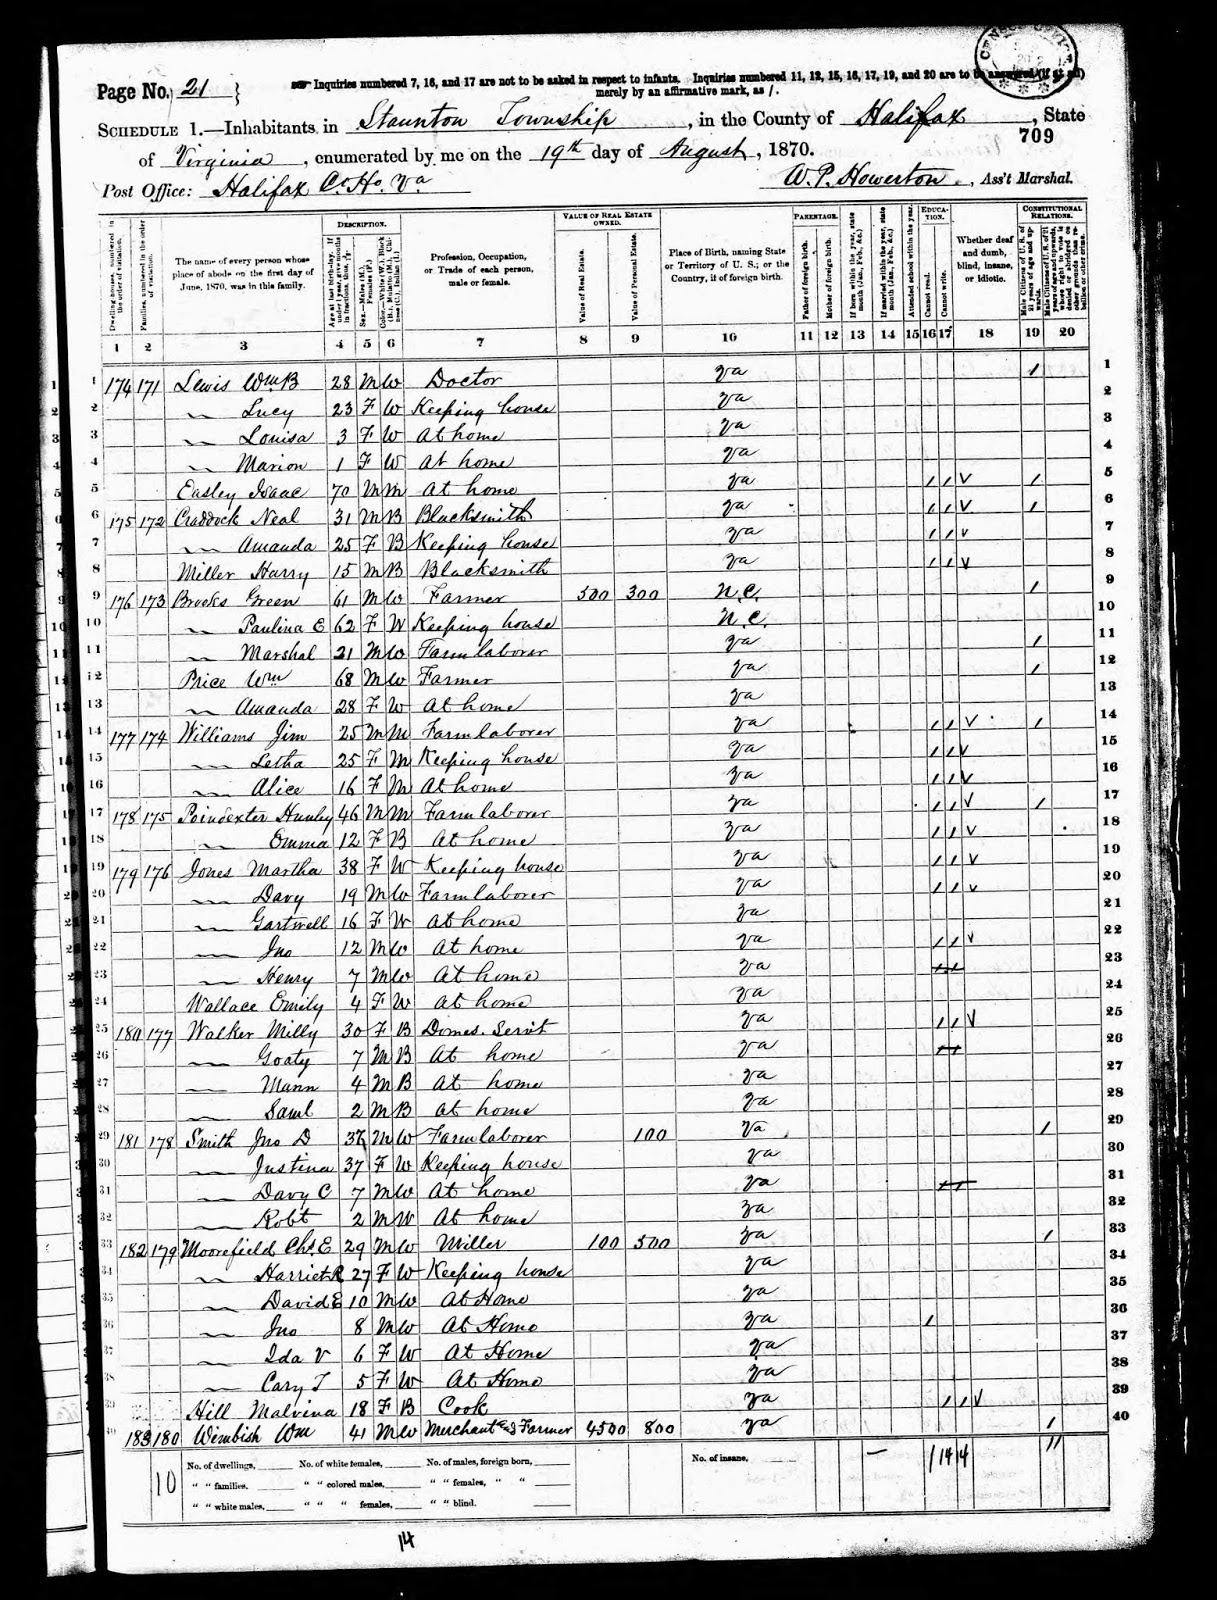 Page No. 21
Inquiries numbered 7, 16, and 17 are not to be asked in respect to infants. Inquiries numbered 11, 12, 15, 16, 17, 19, and 20 are to be answered (if at all)
merely by an affirmative mark, as /.
SCHEDULE 1.—Inhabitants in Staunton Township, in the County of Halifax, State
709
of Virginia, enumerated by me on the 19th day of August, 1870.
Post Office: Halifax Ct. Ho. Va
W. P. Howerton, Ass't Marshal.
Dwelling-houses, numbered in the order of visitation.
Families, numbered in the order of visitation.
The name of every person whose place of abode on the first day of June, 1870, was in this family.
DESCRIPTION.
Age at last birth-day. If under 1 year, give months in fractions, thus, 3/12.
Sex.—Males (M.), Females (F.)
Color.—White (W.), Black (B.), Mulatto (M.), Chinese (C.), Indian (I.)
Profession, Occupation, or Trade of each person, male or female.
VALUE OF REAL ESTATE OWNED.
Value of Real Estate.
Value of Personal Estate.
Place of Birth, naming State or Territory of U. S.; or the Country, if of foreign birth.
PARENTAGE.
Father of foreign birth.
Mother of foreign birth.
If born within the year, state month (Jan., Feb., &c.)
If married within the year, state month (Jan., Feb., &c.)
Attended school within the year.
EDUCATION.
Cannot read.
Cannot write.
Whether deaf and dumb, blind, insane, or idiotic.
CONSTITUTIONAL RELATIONS.
Male Citizens of U. S. of 21 years of age and upwards.
Male Citizens of U. S. of 21 years of age and upwards, whose right to vote is denied or abridged on other grounds than rebellion or other crime.
1 2 3 4 5 6 7 8 9 10 11 12 13 14 15 16 17 18 19 20
1 174 171 Lewis Wm B 28 M W Doctor Va / 1
2 " Lucy 23 F W Keeping house Va 2
3 " Louisa 3 F W At home Va 3
4 " Marion 1 F W At home Va 4
5 Easley Isaac 70 M M At home Va / / V / 5
6 175 172 Craddock Neal 31 M B Blacksmith Va / / V / 6
7 " Amanda 25 F B Keeping house Va / / V 7
8 Miller Harry 15 M B Blacksmith Va / / V 8
9 176 173 Brooks Green 61 M W Farmer 500 300 N.C. / 9
10 " Paulina E 62 F W Keeping house N.C. 10
11 " Marshal 21 M W Farm laborer Va / 11
12 Price Wm 68 M W Farmer Va / 12
13 " Amanda 28 F W At home Va 13
14 177 174 Williams Jim 25 M M Farm laborer Va / / V / 14
15 " Letha 25 F M Keeping house Va / / V 15
16 " Alice 16 F M At home Va / / V 16
17 178 175 Poindexter Hunley 46 M M Farm laborer Va / / V / 17
18 " Emma 12 F B At home Va / / V 18
19 179 176 Jones Martha 38 F W Keeping house Va / / V 19
20 " Davy 19 M W Farm laborer Va / / V 20
21 " Gartwell 16 F W At home Va 21
22 " Jno 12 M W At home Va / / V 22
23 " Henry 7 M W At home Va 23
24 Wallace Emily 4 F W At home Va 24
25 180 177 Walker Milly 30 F B Domes. Servt Va / / V 25
26 " Goaty 7 M B At home Va 26
27 " Mann 4 M B At home Va 27
28 " Saml 2 M B At home Va 28
29 181 178 Smith Jno D 37 M W Farm laborer 100 Va / 29
30 " Justina 37 F W Keeping house Va 30
31 " Davy C 7 M W At home Va 31
32 " Robt 2 M W At home Va 32
33 182 179 Moorefield Chs. E 29 M W Miller 100 500 Va / 33
34 " Harriet R 27 F W Keeping house Va 34
35 " David E 10 M W At Home Va 35
36 " Jno 8 M W At Home Va / 36
37 " Ida V 6 F W At Home Va 37
38 " Cary T 5 F W At Home Va 38
39 Hill Malvina 18 F B Cook Va / / V 39
40 183 180 Wimbish Wm 41 M W Merchant and Farmer 4500 800 Va / 40
10
No. of dwellings, No. of white females, No. of males, foreign born, No. of insane,
" " families, " " colored males, " " females, " "
" " white males, " " " females, " " blind.
— / 14 14 11
14